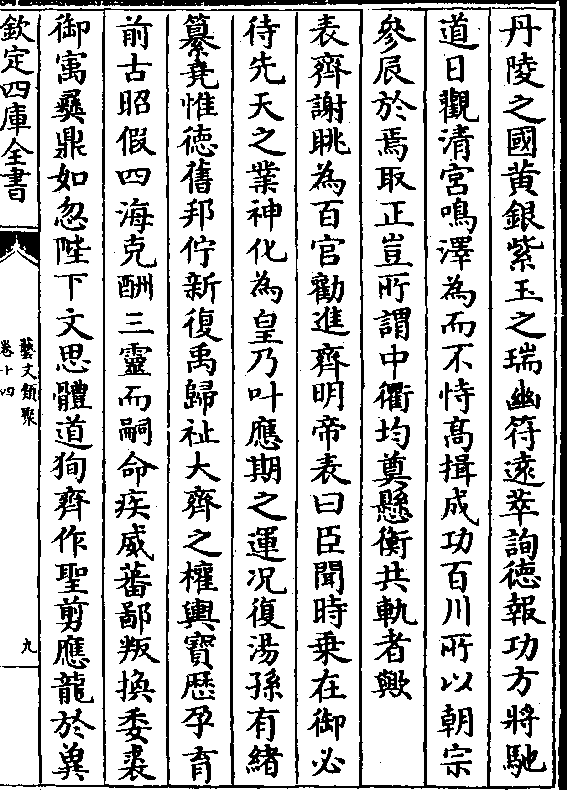 丹陵之國黄銀紫玉之瑞幽符遠萃詢徳報功方將馳
道日觀清宮鳴澤為而不恃高揖成功百川所以朝宗
參辰於焉取正豈所謂中衢均奠懸衡共軌者歟
表齊謝眺為百官勸進齊明帝表曰臣聞時乗在御必
待先天之業神化為皇乃叶應期之運况復湯孫有緒
纂堯惟徳舊邦佇新復禹歸祉大齊之權輿寶歴孕育
前古昭假四海克酬三靈而嗣命疾威蕃鄙叛換委裘
御寓彛鼎如忽陛下文思體道狥齊作聖剪應龍於㢲
欽定四庫全書
藝文類聚
卷十四
九